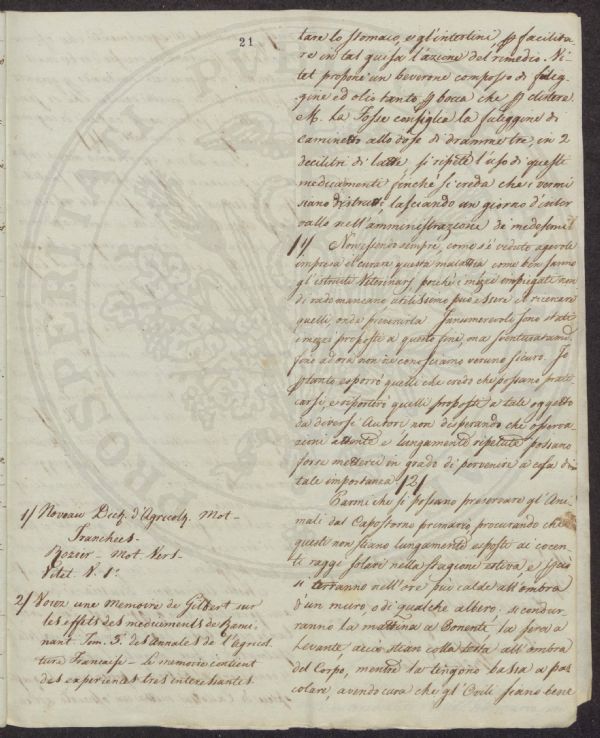 21
tare lo stomaco, e gl'intestini pp facilita-
re in tal guisa l'azione del rimedio. Vi-
tet propone un beverone composto di fuleg-
gine ed olio tanto pp bocca che pp clistere
M. La Fosse consiglia la fuleggine di
caminetto alla dose di dramme tre, in 2
decilitri di latte si ripete l'uso di questi
medicamenti finché si creda che i vermi
siano distrutti, lasciando un giorno d'inter
vallo nell'amministrazione de' medesimi
1/ Non essendo sempre, come s'è veduto agevole
impresa il curare questa malattia come ben sanno
gl'istruiti Veterinarj, poiché i mezzi impiegati non
di rado mancano utilissimo può essere il ricercare
quelli, onde prevenirla. Innumerevoli sono stati
i mezzi proposti a questo fine, ma sventuratamte
fino ad ora non ne conosciamo veruno sicuro. Io
pptanto esporrò quelli che credo che possano prati
carsi, e riporterò quelli proposti a tale oggetto
da diversi Autori non disperando che osserva-
zioni attente e lungamente ripetute possano
forse metterci in grado di pervenire a cosa di
tale importanza /2/
Parmi che si possano preservare gl'Ani-
mali dal Capostorno primario, procurando che
questi non stiano lungamente esposti ai cocen-
ti raggi solari nella stagione estiva e
si terranno nell'ore più calde all'ombra
d'un muro, o di qualche albero: si condur-
ranno la mattina a Ponente, la sera a
Levante, acciò stian colla testa all'ombra
del Corpo, mentre la tengono bassa a pas
colare, avendo cura che gl'Ovili siano bene
1/ Noveau Dict. d'Agricolt. Mot-
Tranchées.
Rozier - Mot Vers -
Vitet. V. 1°
2/ Voiez une memoire de Gilbert sur
les effets des medicaments de Rumi-
nant. Tom. 3. des Annales de l'Agricol
ture Francaise - le memoire contient
des experiences tres interessantes
PROSPERITATI PUBLICAE